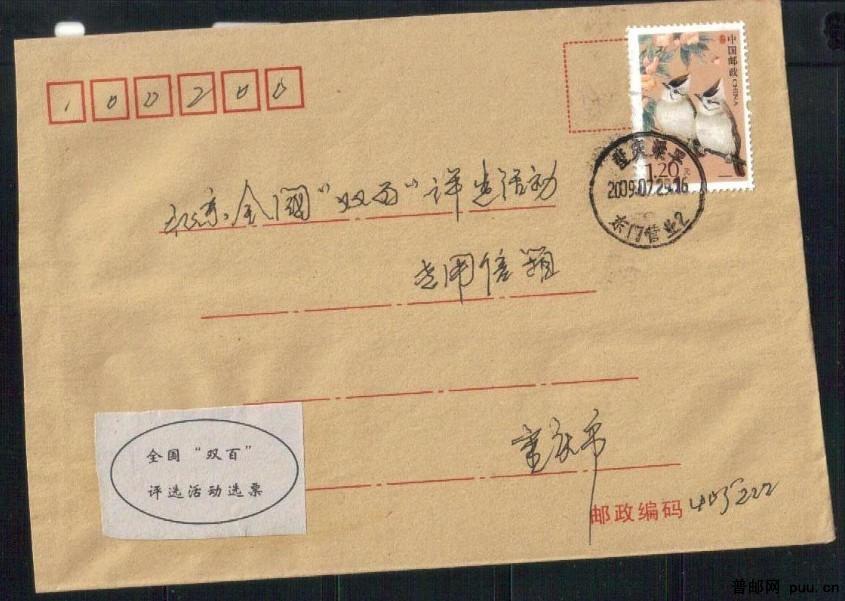 100200
中国邮政 CHINA
1.20元
重庆梁平
2009.07.29.16
东门营业2
北京.全国“双百”评选活动
专用信箱
全国“双百”
评选活动选票
重庆市
邮政编码 405222
普邮网 puu.cn